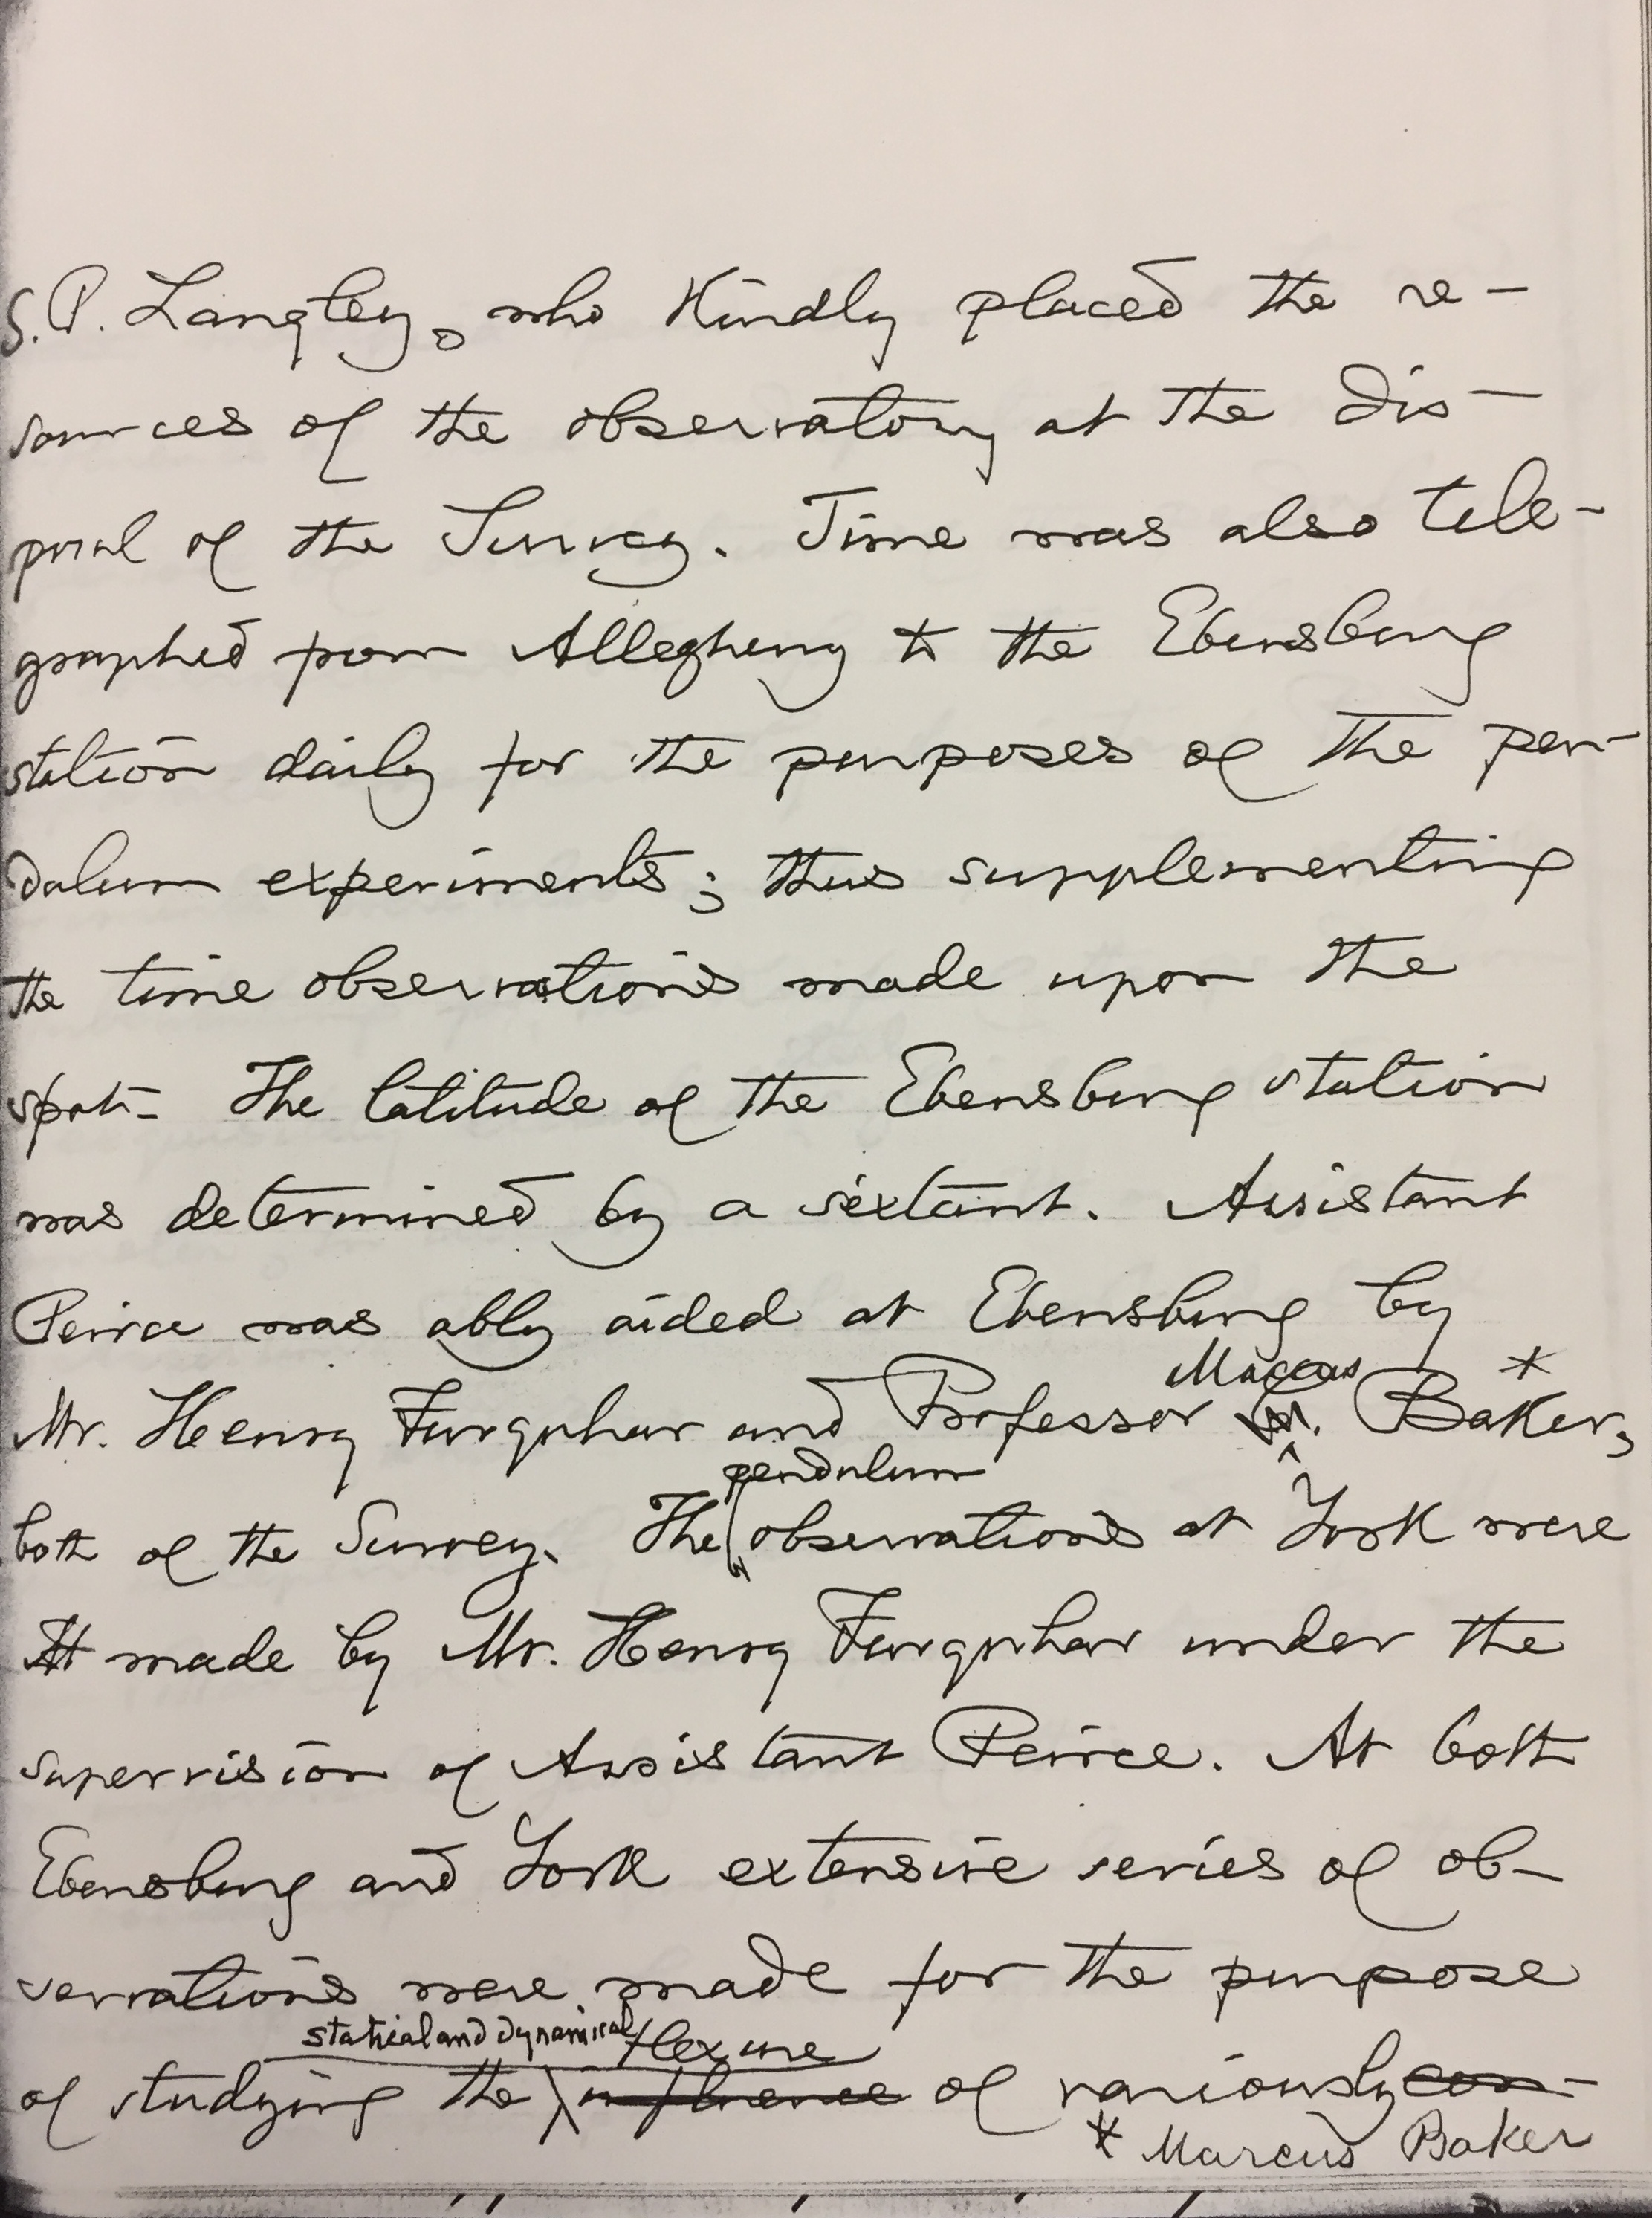 S. P. Langley, who kindly placed the re-
sources of the observatory at the dis-
posal of the Survey. Time was also tele-
graphed from Allegheny to the Ebensburg
station daily for the purposes of the pen-
dulum experiments; thus supplementing
the time observations made upon the
spot- The latitude of the Ebensburg station
was determined by a sextant. Assistant
Peirce was ably aided at Ebensburg by
Marcus *
Mr. Henry Farquhar and Professor Baker,
pendulum
both of the Survey. The observations at York were
made by Mr. Henry Farquhar under the
supervision of Assistant Peirce. At both
Ebensburg and York extensive series of ob-
servations were made for the purpose
statical and dynamical flexure
of studying the influence of variously con-
* Marcus Baker